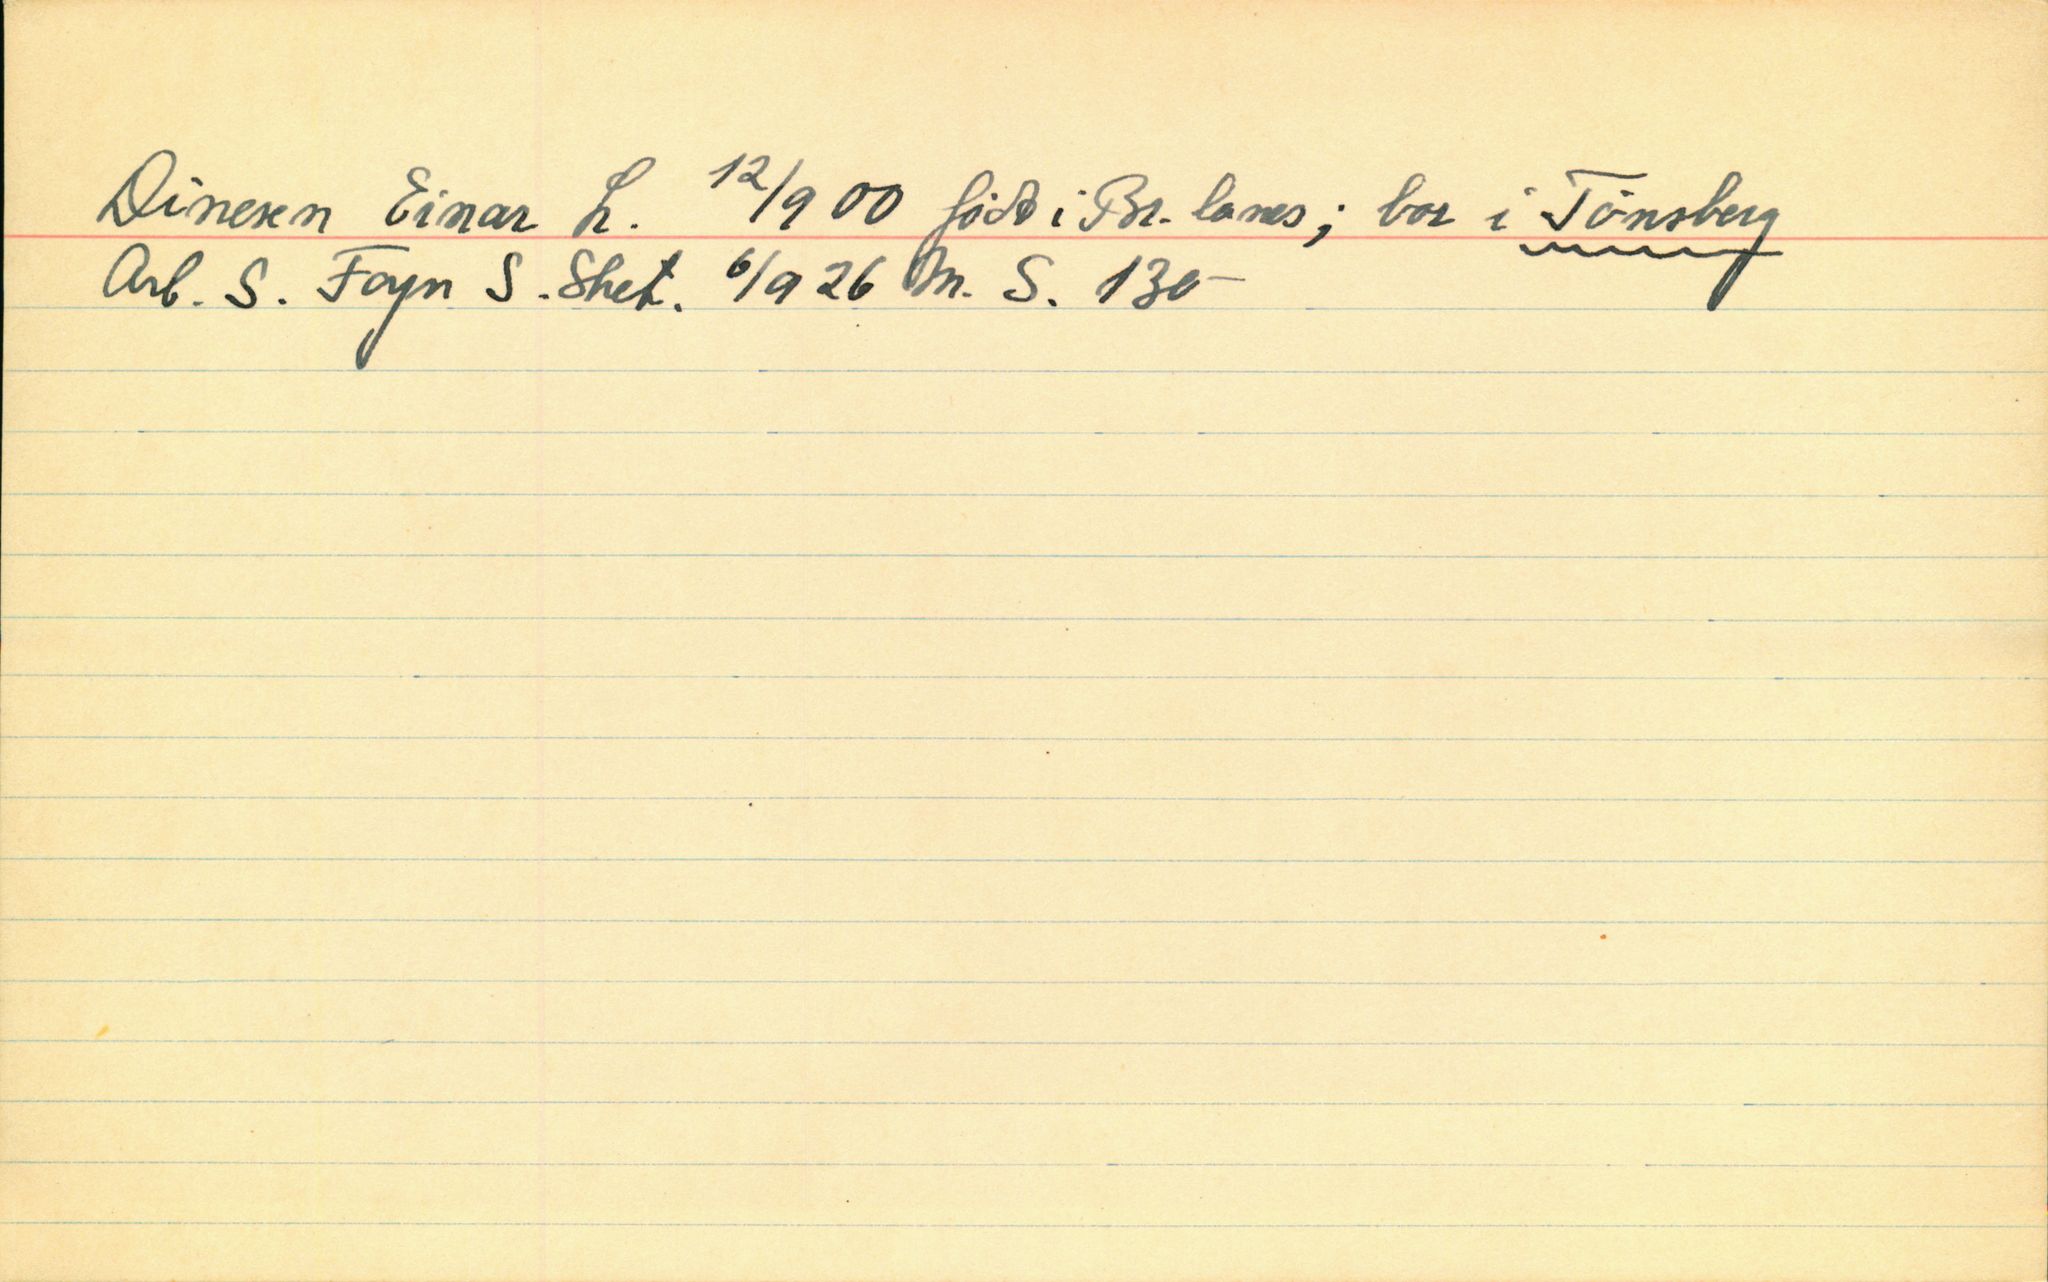 Dinesen Einar L. 12/9 00 född i Br. lanes; bor i Tönsberg
Arb. S. Foyn S. Shet. 6/9 26 M. S. 130-